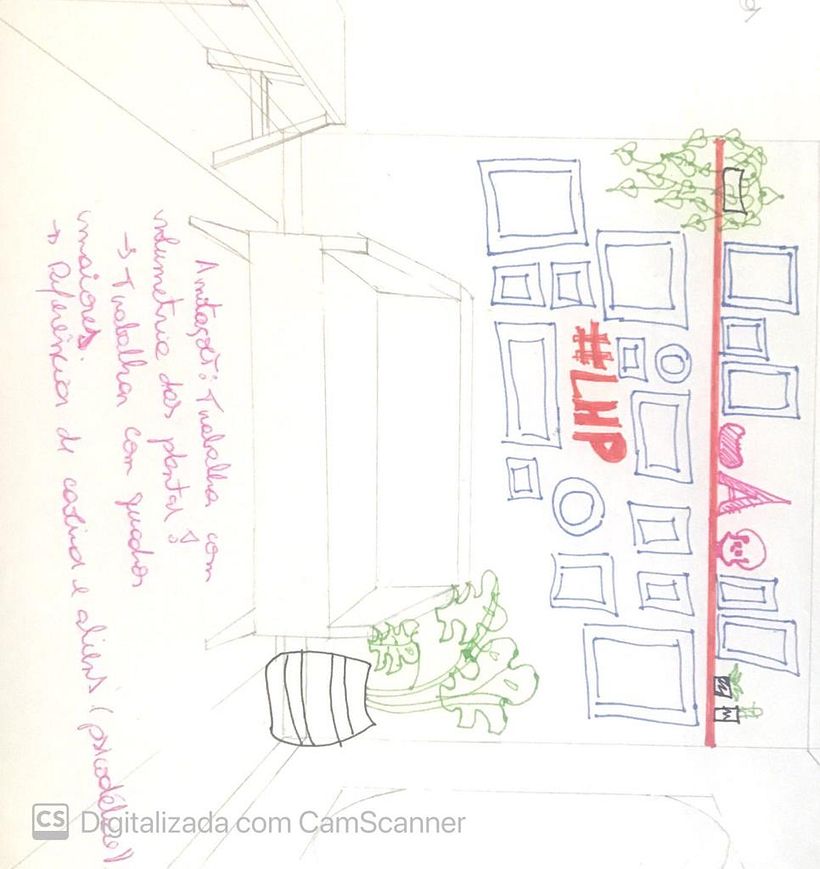 #LHP
Anotações: Trabalhar com
volumetria das plantas
→ Trabalhar com quadros
maiores.
→ Referências de caveira e aliens (psicodélico)
CS Digitalizada com CamScanner